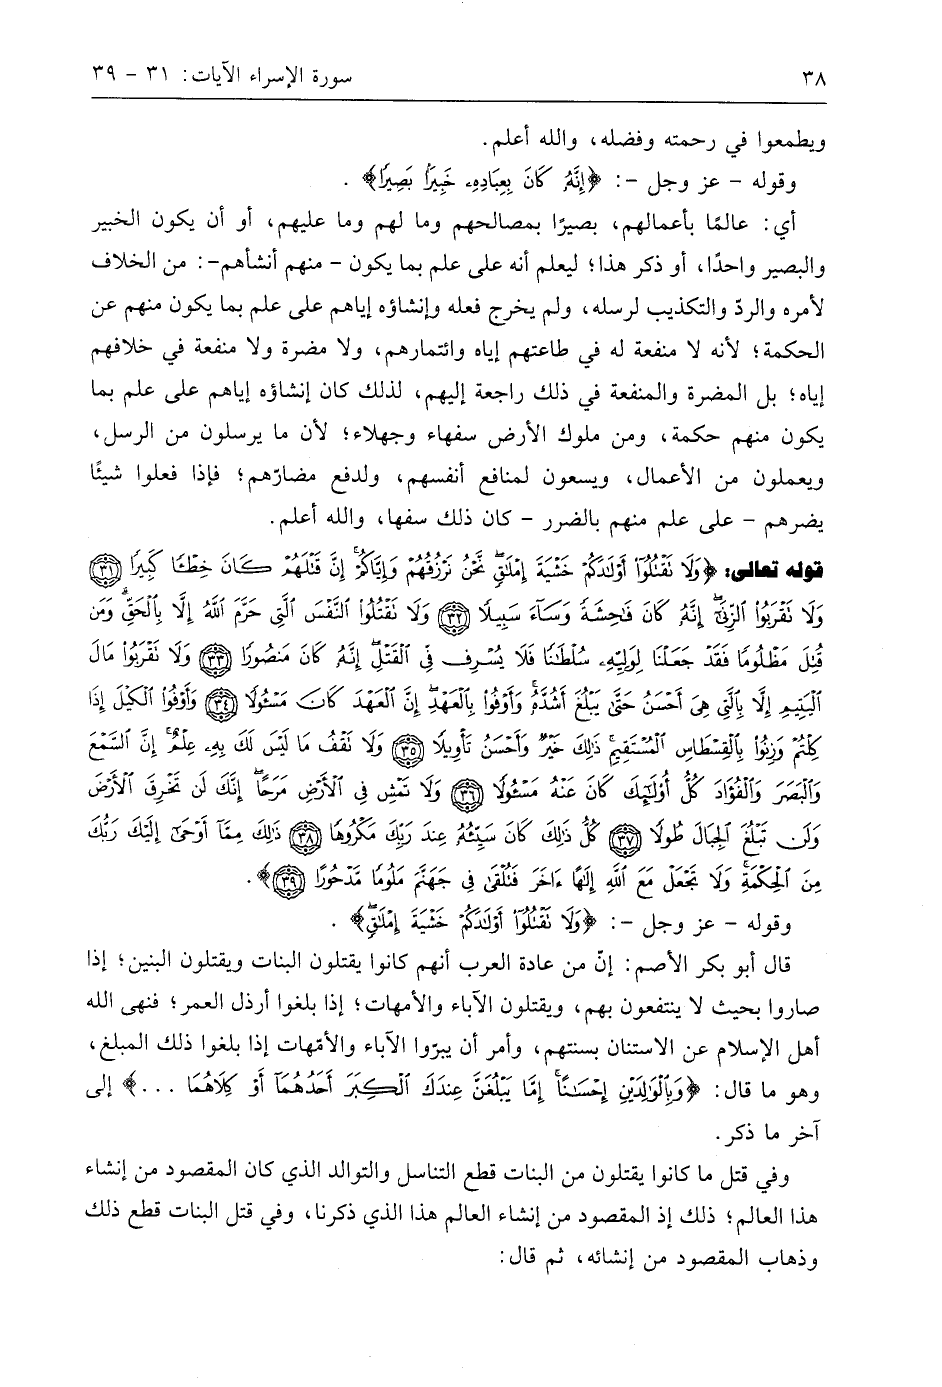 ٣٨ سورة الإسراء الآيات: ٣١ - ٣٩
ويطمعوا في رحمته وفضله، والله أعلم.
وقوله - عز وجل -: ﴿إِنَّهُۥ كَانَ بِعِبَادِهِۦ خَبِيرًۢا بَصِيرًا﴾ .
أي: عالمًا بأعمالهم، بصيرًا بمصالحهم وما لهم وما عليهم، أو أن يكون الخبير
والبصير واحدًا، أو ذكر هذا؛ ليعلم أنه على علم بما يكون - منهم أنشأهم-: من الخلاف
لأمره والردّ والتكذيب لرسله، ولم يخرج فعله وإنشاؤه إياهم على علم بما يكون منهم عن
الحكمة؛ لأنه لا منفعة له في طاعتهم إياه وائتمارهم، ولا مضرة ولا منفعة في خلافهم
إياه؛ بل المضرة والمنفعة في ذلك راجعة إليهم، لذلك كان إنشاؤه إياهم على علم بما
يكون منهم حكمة، ومن ملوك الأرض سفهاء وجهلاء؛ لأن ما يرسلون من الرسل،
ويعملون من الأعمال، ويسعون لمنافع أنفسهم، ولدفع مضارّهم؛ فإذا فعلوا شيئًا
يضرهم - على علم منهم بالضرر - كان ذلك سفها، والله أعلم.
قوله تعالى: ﴿وَلَا نَقْنُلُوٓا۟ أَوْلَـٰدَكُمْ خَشْيَةَ إِمْلَـٰقٍ ۖ نَّحْنُ نَرْزُقُهُمْ وَإِيَّاكُمْ ۚ إِنَّ قَتْلَهُمْ كَانَ خِطْـًٔا كَبِيرًا ﴿٣١﴾
وَلَا تَقْرَبُوا۟ ٱلزِّنَىٰٓ ۖ إِنَّهُۥ كَانَ فَـٰحِشَةً وَسَآءَ سَبِيلًا ﴿٣٢﴾ وَلَا تَقْتُلُوا۟ ٱلنَّفْسَ ٱلَّتِى حَرَّمَ ٱللَّهُ إِلَّا بِٱلْحَقِّ ۗ وَمَن
قُتِلَ مَظْلُومًا فَقَدْ جَعَلْنَا لِوَلِيِّهِۦ سُلْطَـٰنًا فَلَا يُسْرِف فِّى ٱلْقَتْلِ ۖ إِنَّهُۥ كَانَ مَنصُورًا ﴿٣٣﴾ وَلَا تَقْرَبُوا۟ مَالَ
ٱلْيَتِيمِ إِلَّا بِٱلَّتِى هِىَ أَحْسَنُ حَتَّىٰ يَبْلُغَ أَشُدَّهُۥ ۚ وَأَوْفُوا۟ بِٱلْعَهْدِ ۖ إِنَّ ٱلْعَهْدَ كَانَ مَسْـُٔولًا ﴿٣٤﴾ وَأَوْفُوا۟ ٱلْكَيْلَ إِذَا
كِلْتُمْ وَزِنُوا۟ بِٱلْقِسْطَاسِ ٱلْمُسْتَقِيمِ ۚ ذَٰلِكَ خَيْرٌ وَأَحْسَنُ تَأْوِيلًا ﴿٣٥﴾ وَلَا تَقْفُ مَا لَيْسَ لَكَ بِهِۦ عِلْمٌ ۚ إِنَّ ٱلسَّمْعَ
وَٱلْبَصَرَ وَٱلْفُؤَادَ كُلُّ أُو۟لَـٰٓئِكَ كَانَ عَنْهُ مَسْـُٔولًا ﴿٣٦﴾ وَلَا تَمْشِ فِى ٱلْأَرْضِ مَرَحًا ۖ إِنَّكَ لَن تَخْرِقَ ٱلْأَرْضَ
وَلَن تَبْلُغَ ٱلْجِبَالَ طُولًا ﴿٣٧﴾ كُلُّ ذَٰلِكَ كَانَ سَيِّئُهُۥ عِندَ رَبِّكَ مَكْرُوهًا ﴿٣٨﴾ ذَٰلِكَ مِمَّآ أَوْحَىٰٓ إِلَيْكَ رَبُّكَ
مِنَ ٱلْحِكْمَةِ ۗ وَلَا تَجْعَلْ مَعَ ٱللَّهِ إِلَـٰهًا ءَاخَرَ فَتُلْقَىٰ فِى جَهَنَّمَ مَلُومًا مَّدْحُورًا ﴿٣٩﴾﴾.
وقوله - عز وجل -: ﴿وَلَا تَقْتُلُوٓا۟ أَوْلَـٰدَكُمْ خَشْيَةَ إِمْلَـٰقٍ ۖ﴾ .
قال أبو بكر الأصم: إنّ من عادة العرب أنهم كانوا يقتلون البنات ويقتلون البنين؛ إذا
صاروا بحيث لا ينتفعون بهم، ويقتلون الآباء والأمهات؛ إذا بلغوا أرذل العمر؛ فنهى الله
أهل الإسلام عن الاستنان بسنتهم، وأمر أن يبرّوا الآباء والأمّهات إذا بلغوا ذلك المبلغ،
وهو ما قال: ﴿وَبِٱلْوَٰلِدَيْنِ إِحْسَـٰنًا ۚ إِمَّا يَبْلُغَنَّ عِندَكَ ٱلْكِبَرَ أَحَدُهُمَآ أَوْ كِلَاهُمَا ...﴾ إلى
آخر ما ذكر.
وفي قتل ما كانوا يقتلون من البنات قطع التناسل والتوالد الذي كان المقصود من إنشاء
هذا العالم؛ ذلك إذ المقصود من إنشاء العالم هذا الذي ذكرنا، وفي قتل البنات قطع ذلك
وذهاب المقصود من إنشائه، ثم قال: